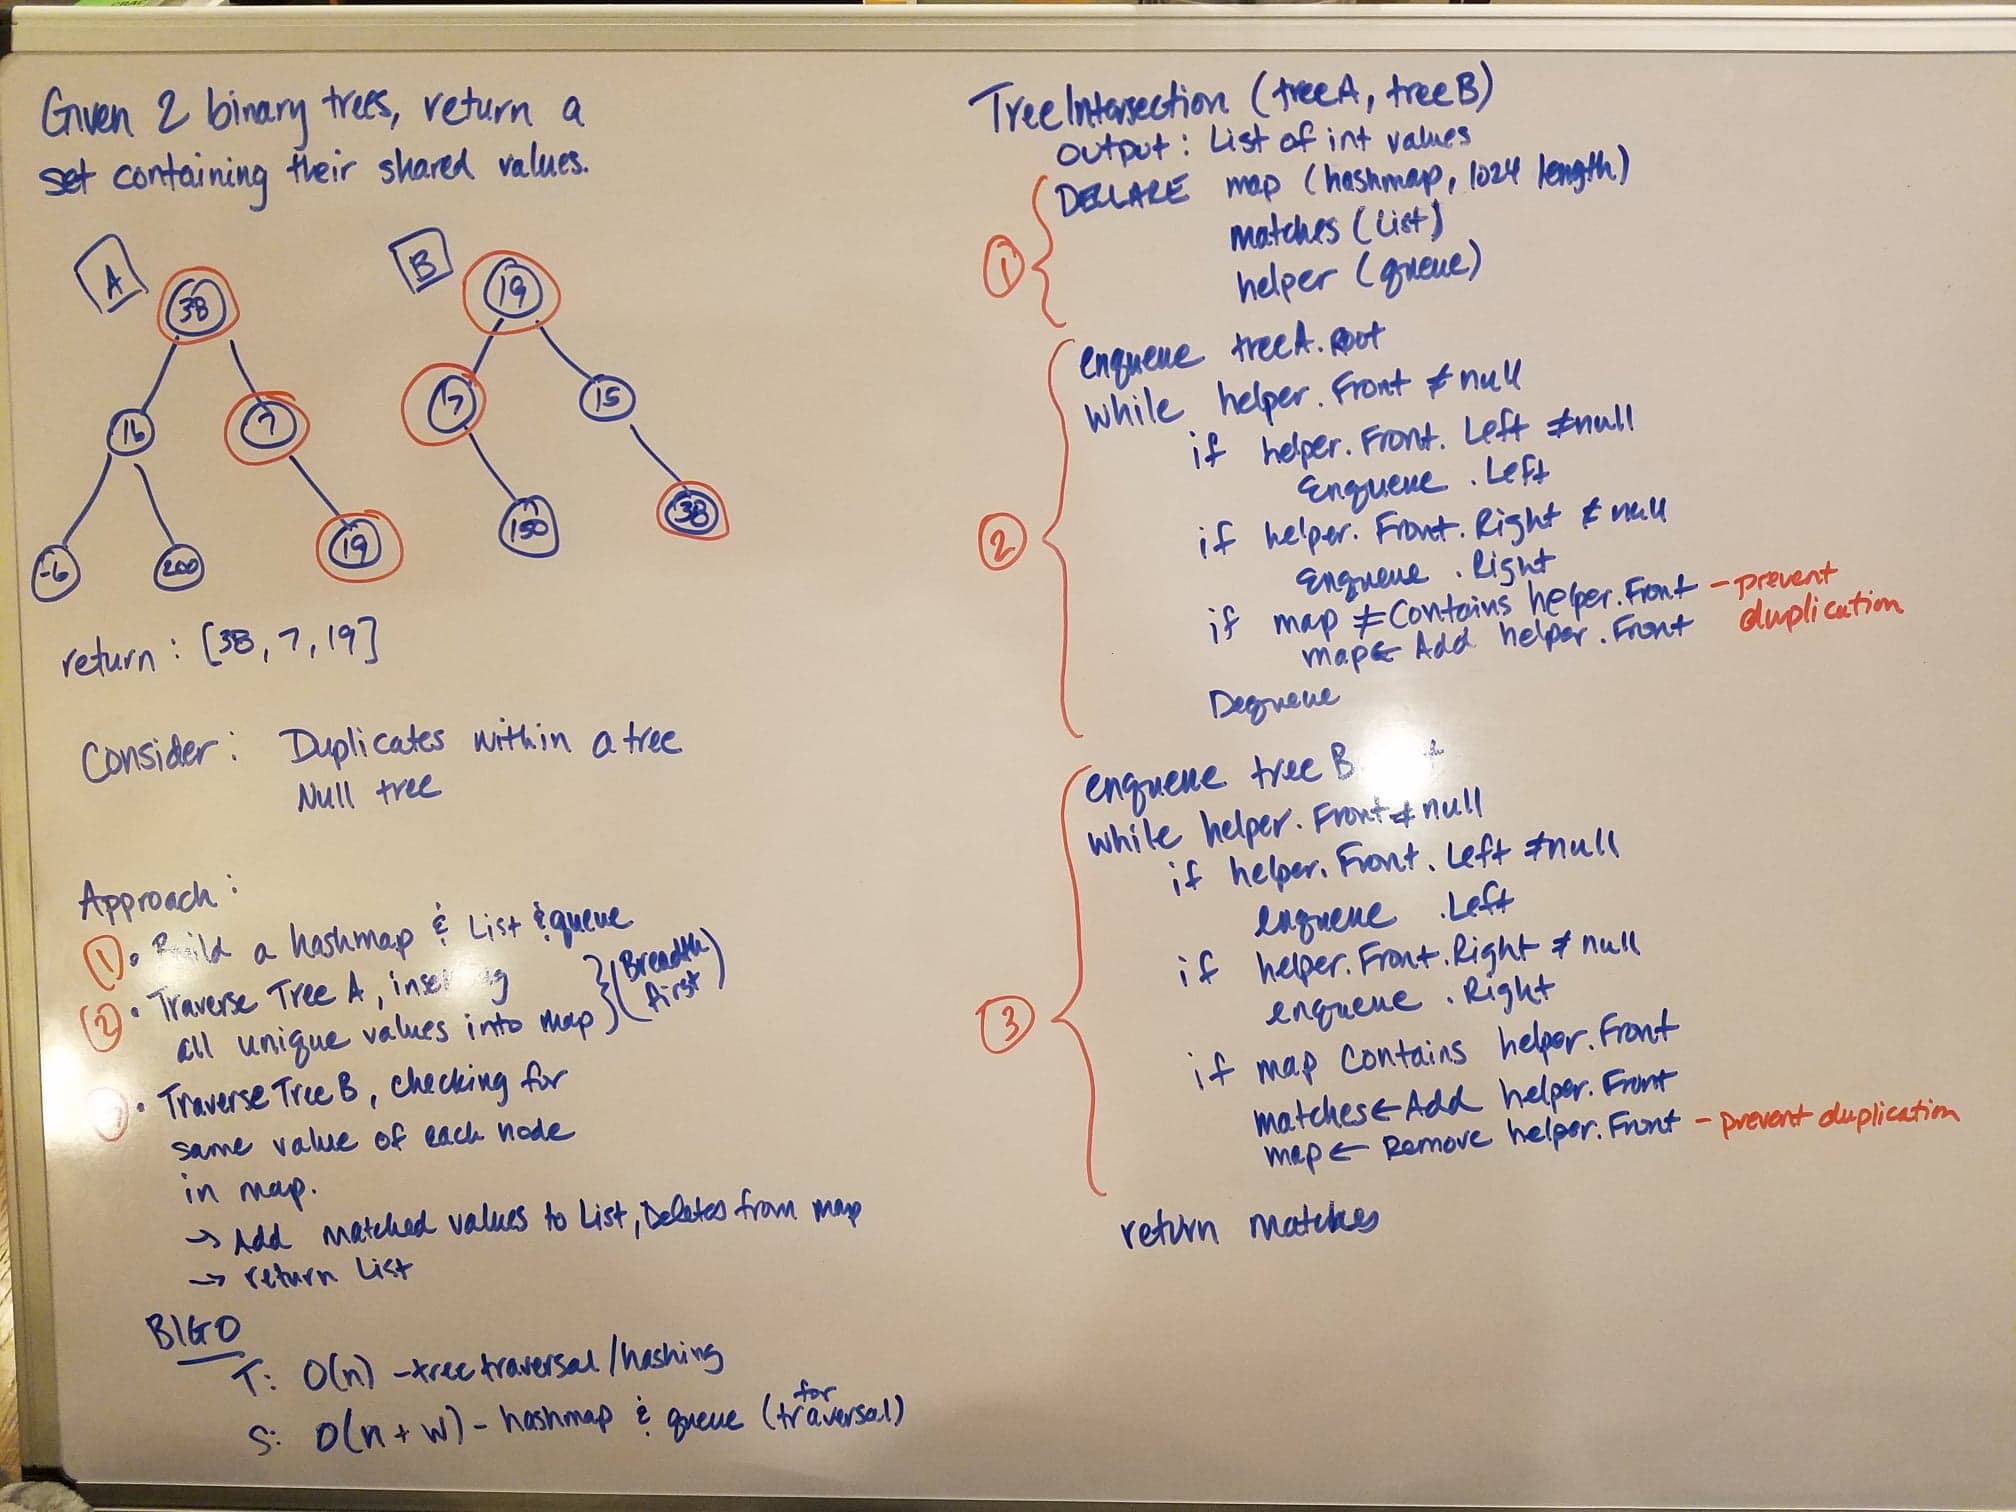 Given 2 binary trees, return a
set containing their shared values.
A
38
16
7
-6
200
19
B
19
7
15
150
38
return : [38, 7, 19]
Consider : Duplicates within a tree
Null tree
Approach :
① • Build a hashmap & List & queue
② • Traverse Tree A, inserting
all unique values into map } (Breadth first)
③ • Traverse Tree B, checking for
same value of each node
in map.
→ Add matched values to List, Deletes from map
→ return List
BIG O
T: O(n) - tree traversal / hashing
S: O(n + w) - hashmap & queue (for traversal)
TreeIntersection (treeA, treeB)
output : List of int values
①
DECLARE map (hashmap, 1024 length)
matches (List)
helper (queue)
②
enqueue treeA.Root
while helper.Front ≠ null
if helper.Front.Left ≠ null
Enqueue .Left
if helper.Front.Right ≠ null
Enqueue .Right
if map ≠ Contains helper.Front - prevent duplication
map ← Add helper.Front
Dequeue
③
enqueue tree B
while helper.Front ≠ null
if helper.Front.Left ≠ null
enqueue .Left
if helper.Front.Right ≠ null
enqueue .Right
if map contains helper.Front
matches ← Add helper.Front
map ← Remove helper.Front - prevent duplication
return matches